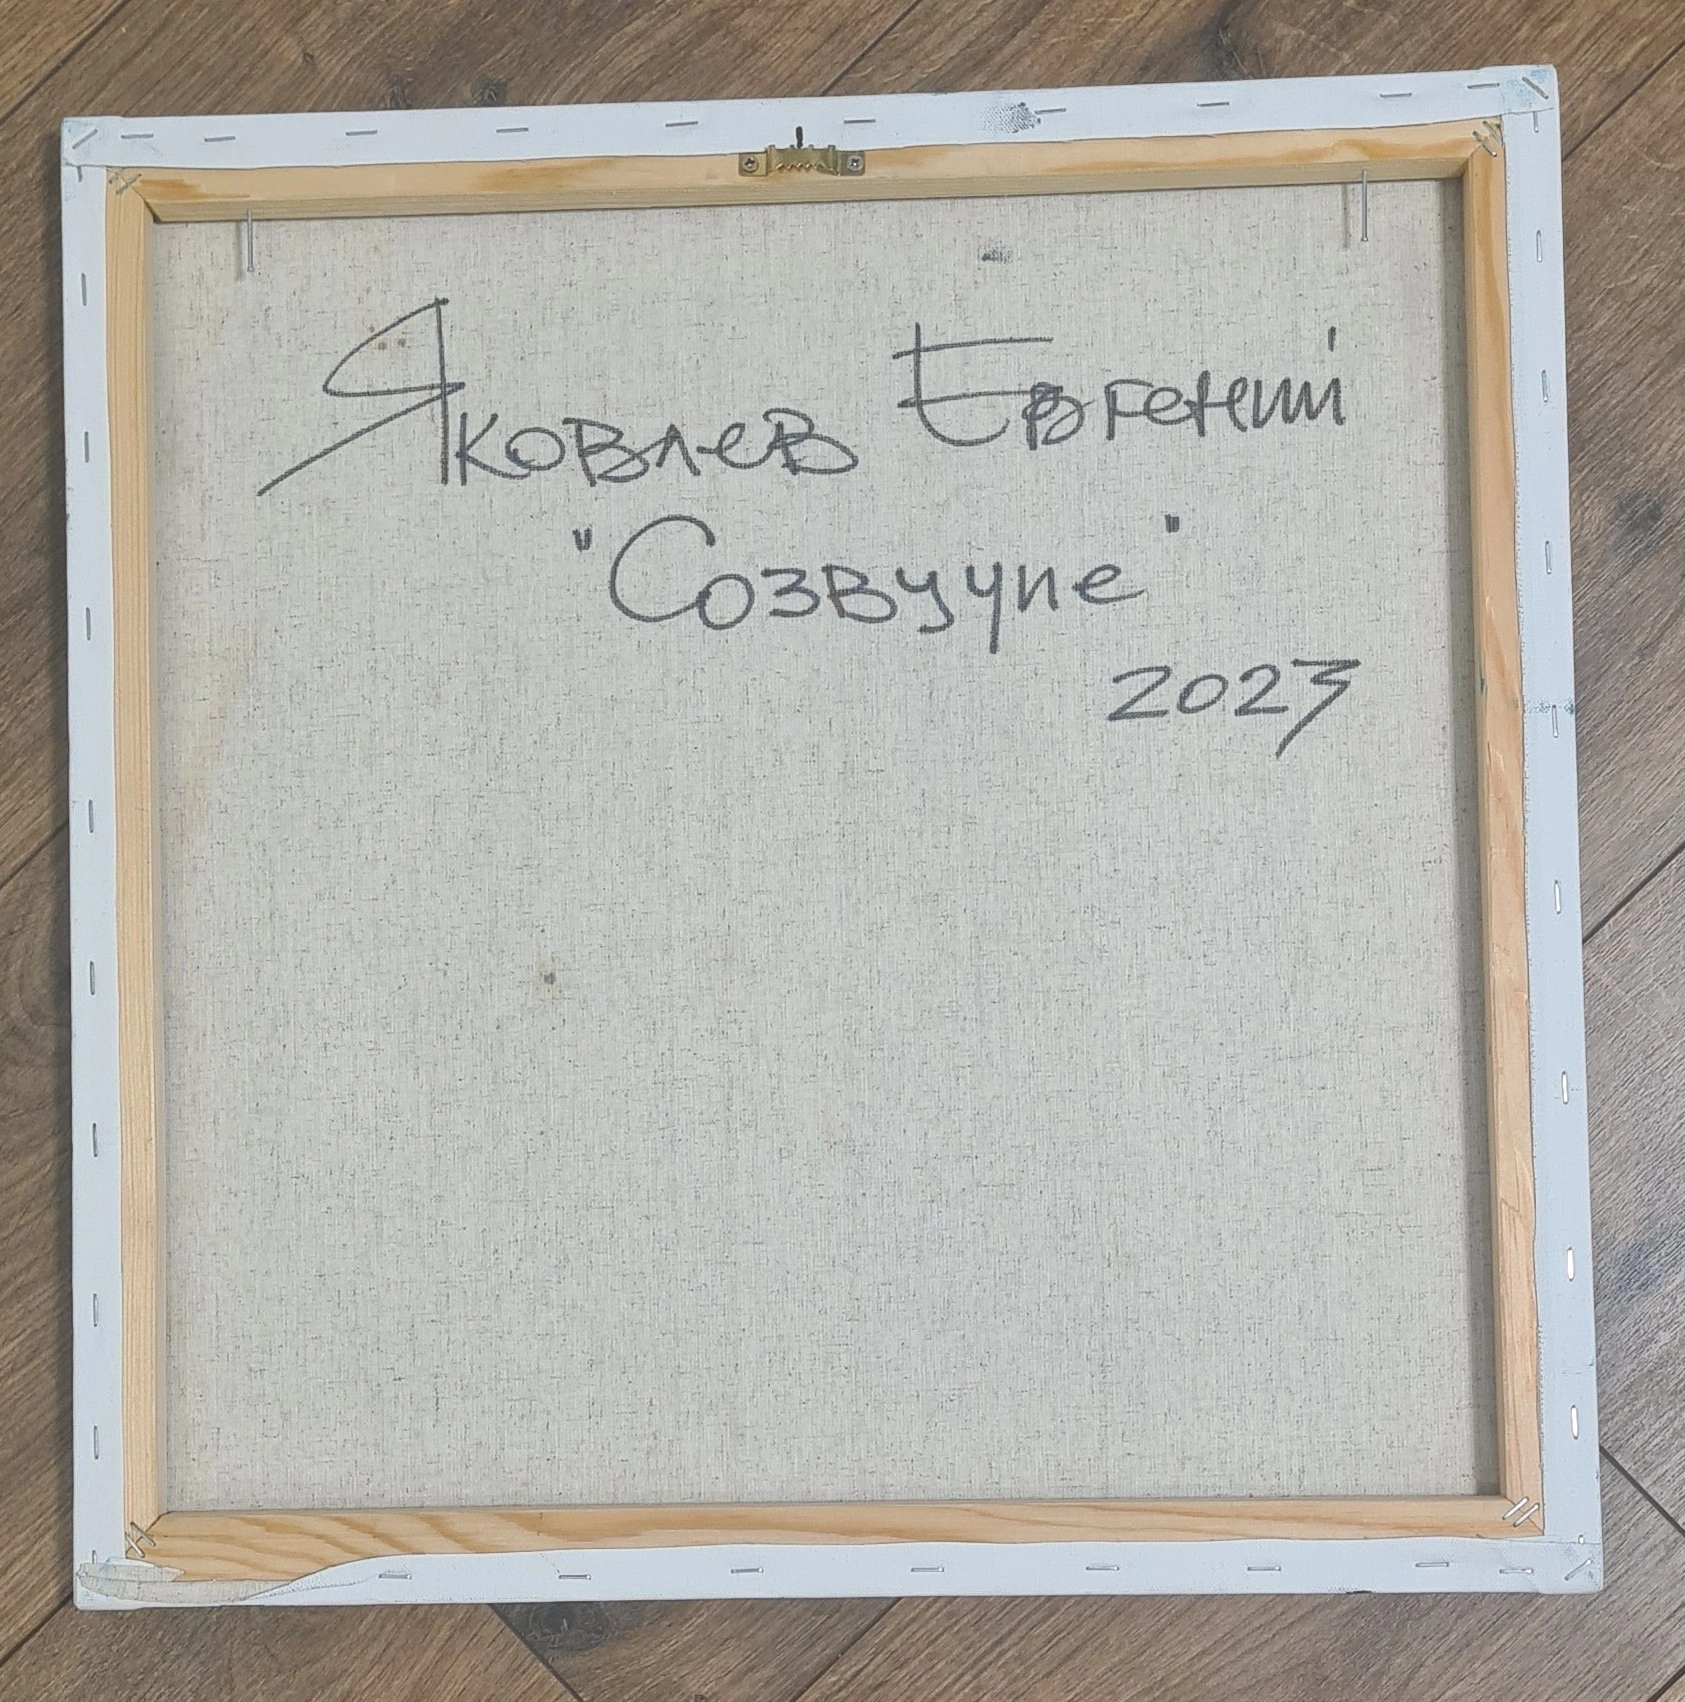 Яковлев Евгений
"Созвучие"
2023